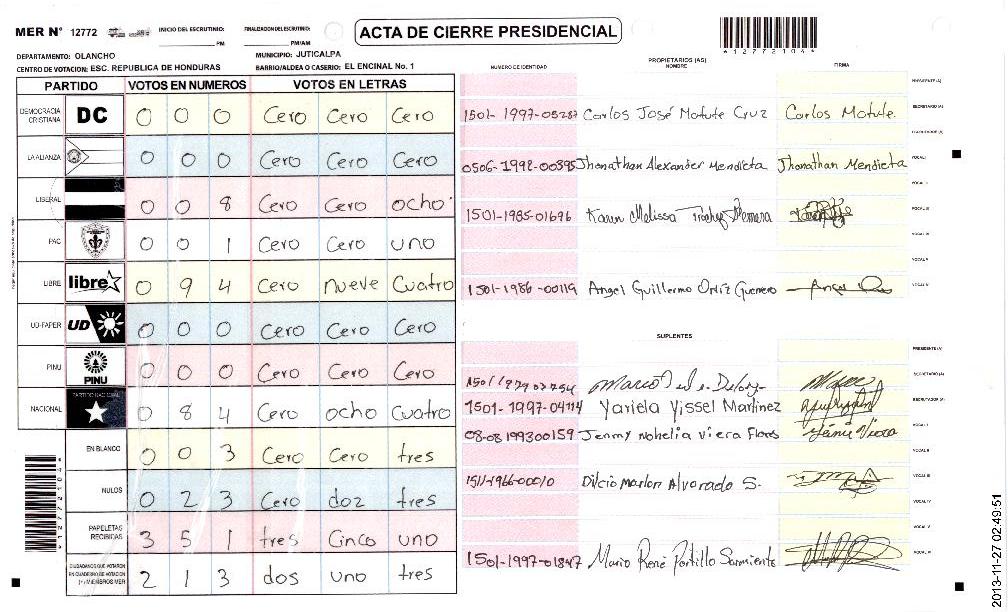 MER Nº 12772 INICIO DEL ESCRUTINIO: PM FINALIZACION DEL ESCRUTINIO: PM/AM
ACTA DE CIERRE PRESIDENCIAL
DEPARTAMENTO: OLANCHO MUNICIPIO: JUTICALPA
CENTRO DE VOTACION: ESC. REPUBLICA DE HONDURAS BARRIO/ALDEA O CASERIO: EL ENCINAL No. 1
PARTIDO VOTOS EN NUMEROS VOTOS EN LETRAS
DEMOCRACIA CRISTIANA DC 0 0 0 Cero Cero Cero
LA ALIANZA 0 0 0 Cero Cero Cero
LIBERAL 0 0 8 Cero Cero ocho
PAC 0 0 1 Cero Cero uno
LIBRE libre 0 9 4 Cero nueve Cuatro
UD-FAPER UD 0 0 0 Cero Cero Cero
PINU PINU 0 0 0 Cero Cero Cero
NACIONAL PARTIDO NACIONAL 0 8 4 Cero ocho cuatro
EN BLANCO 0 0 3 Cero Cero tres
NULOS 0 2 3 Cero doz tres
PAPELETAS RECIBIDAS 3 5 1 tres Cinco uno
CIUDADANOS QUE VOTARON EN CUADERNO DE VOTACION (+) MIEMBROS MER 2 1 3 dos uno tres
NUMERO DE IDENTIDAD PROPIETARIOS (AS) NOMBRE FIRMA
PRESIDENTE (A)
1501-1997-05287 Carlos José Matute Cruz Carlos Matute. SECRETARIO (A)
ESCRUTADOR (A)
0506-1992-00395 Jhonathan Alexander Mendieta Jhonathan Mendieta VOCAL I
VOCAL II
1501-1985-01696 Karen Melissa VOCAL III
VOCAL IV
VOCAL V
1501-1986-00119 Angel Guillermo Ortiz Guerrero Angel VOCAL VI
SUPLENTES
PRESIDENTE (A)
SECRETARIO (A)
1501-1997-04114 Yariela Yissel Martinez ESCRUTADOR (A)
08-08 199300159 Jenmy Nohelia Viera Flores VOCAL I
VOCAL II
1511-1966-00010 Dilcio Marlon Alvarado S. VOCAL III
VOCAL IV
VOCAL V
1501-1997-01847 Mario René Portillo Sarmiento VOCAL VI
2013-11-27 02:49:51